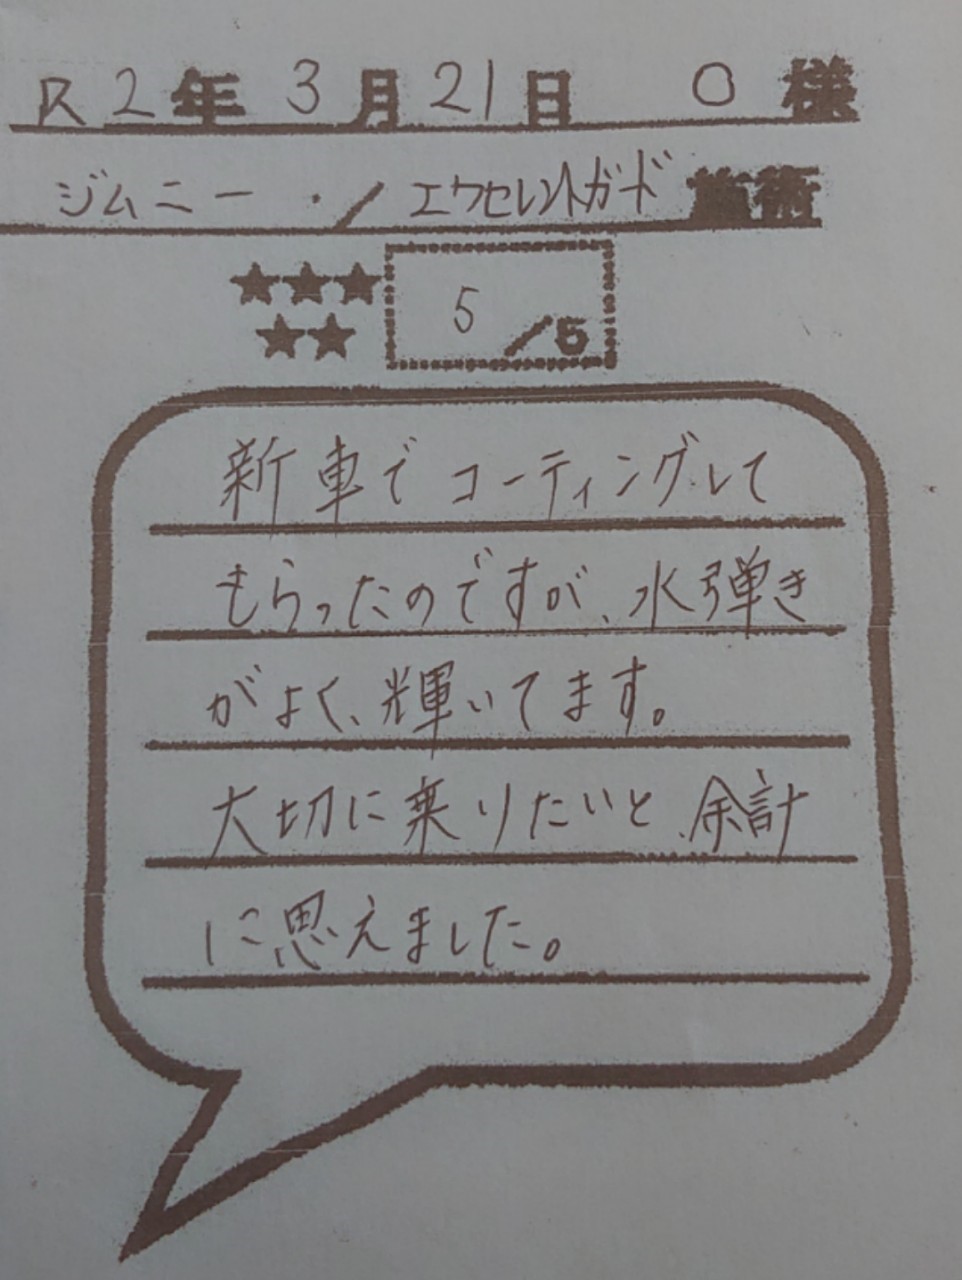 R2年 3月21日 O様
ジムニー ・／エクセレントガード施術
★★★
★★
5／5
新車でコーティングして
もらったのですが、水弾き
がよく、輝いてます。
大切に乗りたいと、余計
に思えました。